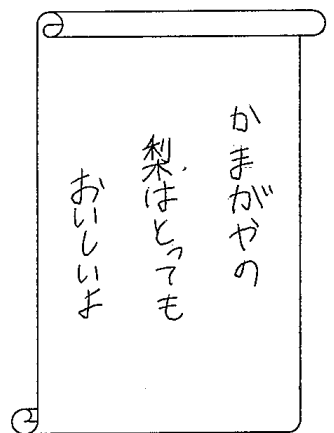 かまがやの
梨はとっても
おいしいよ